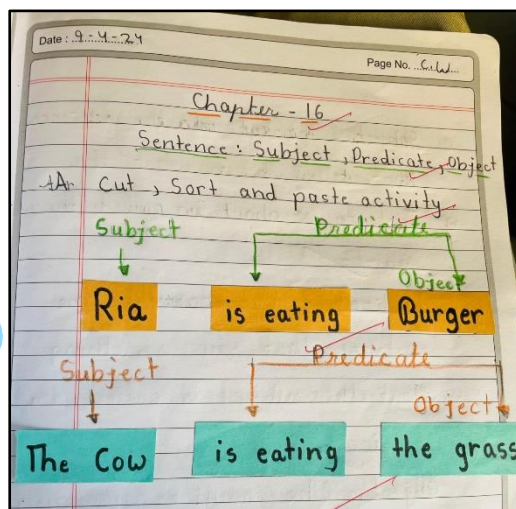 Date : 9-4-24
Page No. C.W.
Chapter - 16
Sentence : Subject , Predicate , Object
Cut , Sort and paste activity
Subject Predicate
Object
Ria is eating Burger
Predicate
Subject
Object
The Cow is eating the grass